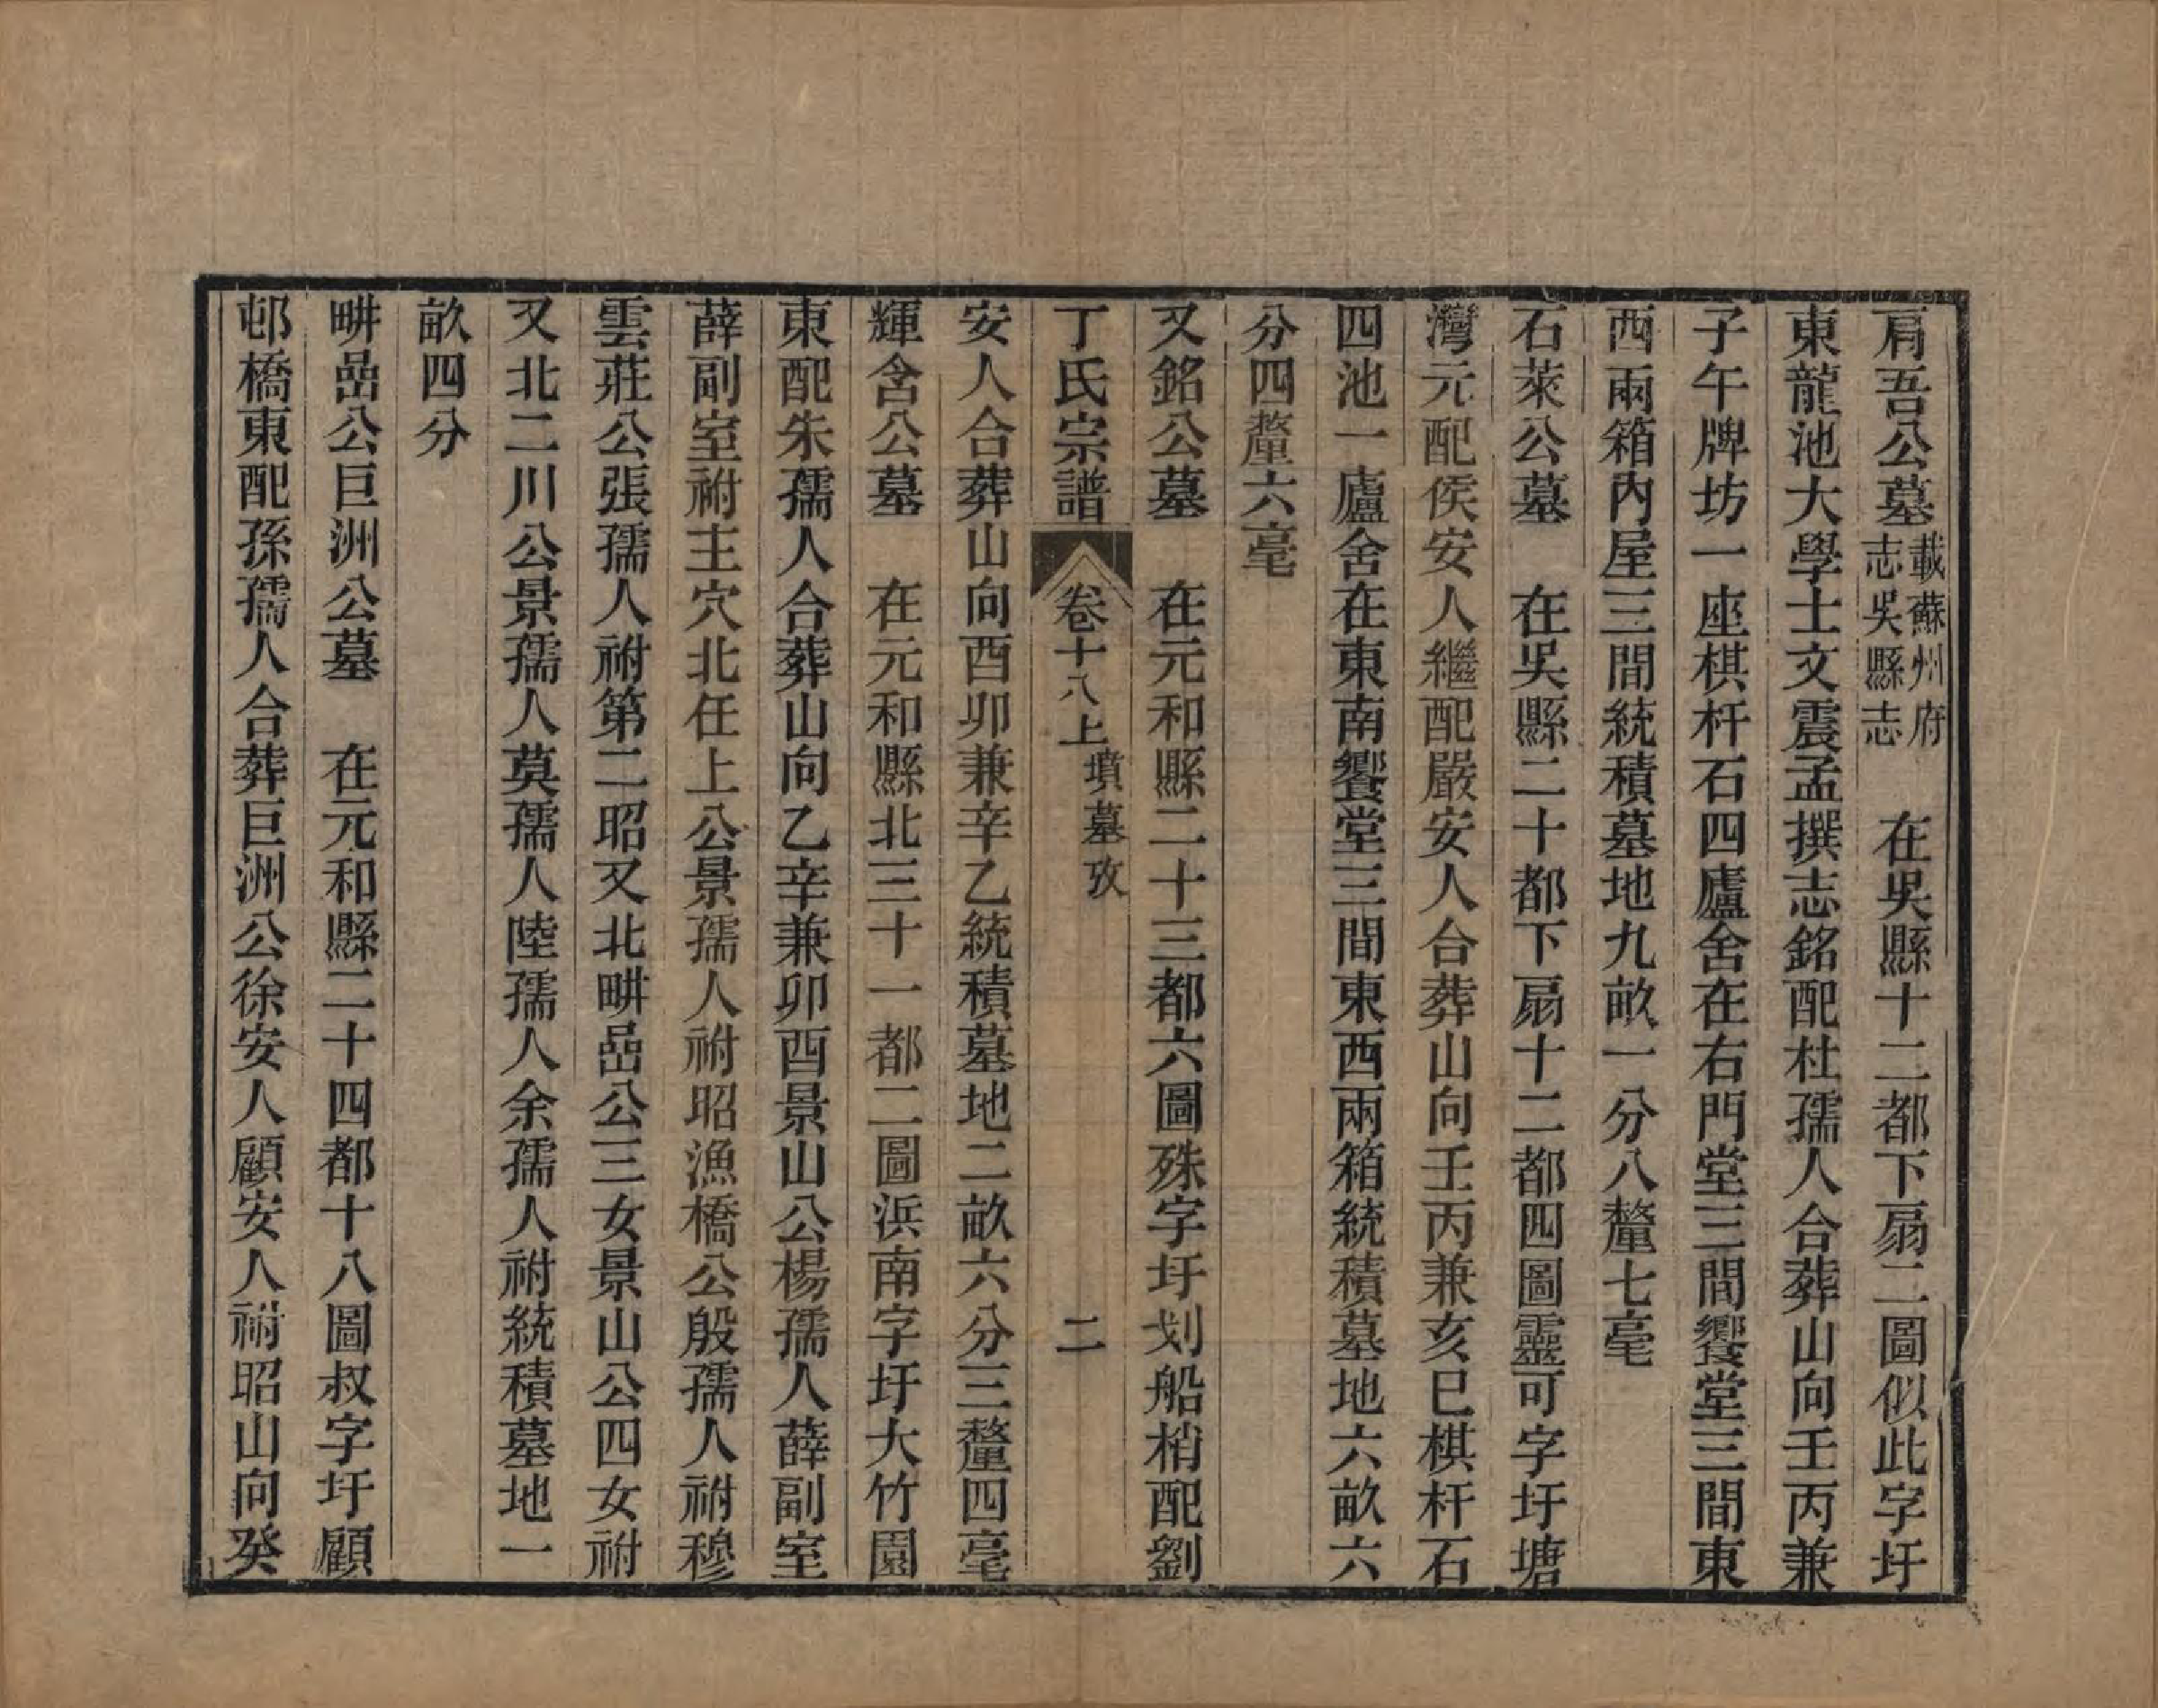 肩吾公墓載蘇州府志吳縣志　在吳縣十二都下扇二圖似此字圩
東龍池大學士文震孟撰志銘配杜孺人合葬山向壬丙兼
子午牌坊一座棋杆石四廬舍在右門堂三間饗堂三間東
西兩箱內屋三間統積墓地九畝一分八釐七毫
石萊公墓　在吳縣二十都下扇十二都四圖靈可字圩塘
灣元配侯安人繼配嚴安人合葬山向壬丙兼亥巳棋杆石
四池一廬舍在東南饗堂三間東西兩箱統積墓地六畝六
分四釐六毫
又銘公墓　在元和縣二十三都六圖殊字圩划船梢配劉
丁氏宗譜　卷十八上　墳墓攷　二
安人合葬山向酉卯兼辛乙統積墓地二畝六分三釐四毫
輝含公墓　在元和縣北三十一都二圖浜南字圩大竹園
東配朱孺人合葬山向乙辛兼卯酉景山公楊孺人薛副室
薛副室祔主穴北任上公景孺人祔昭漁橋公殷孺人祔穆
雲莊公張孺人祔第二昭又北畊嵒公三女景山公四女祔
又北二川公景孺人莫孺人陸孺人余孺人祔統積墓地一
畝四分
畊嵒公巨洲公墓　在元和縣二十四都十八圖叔字圩顧
邨橋東配孫孺人合葬巨洲公徐安人顧安人祔昭山向癸